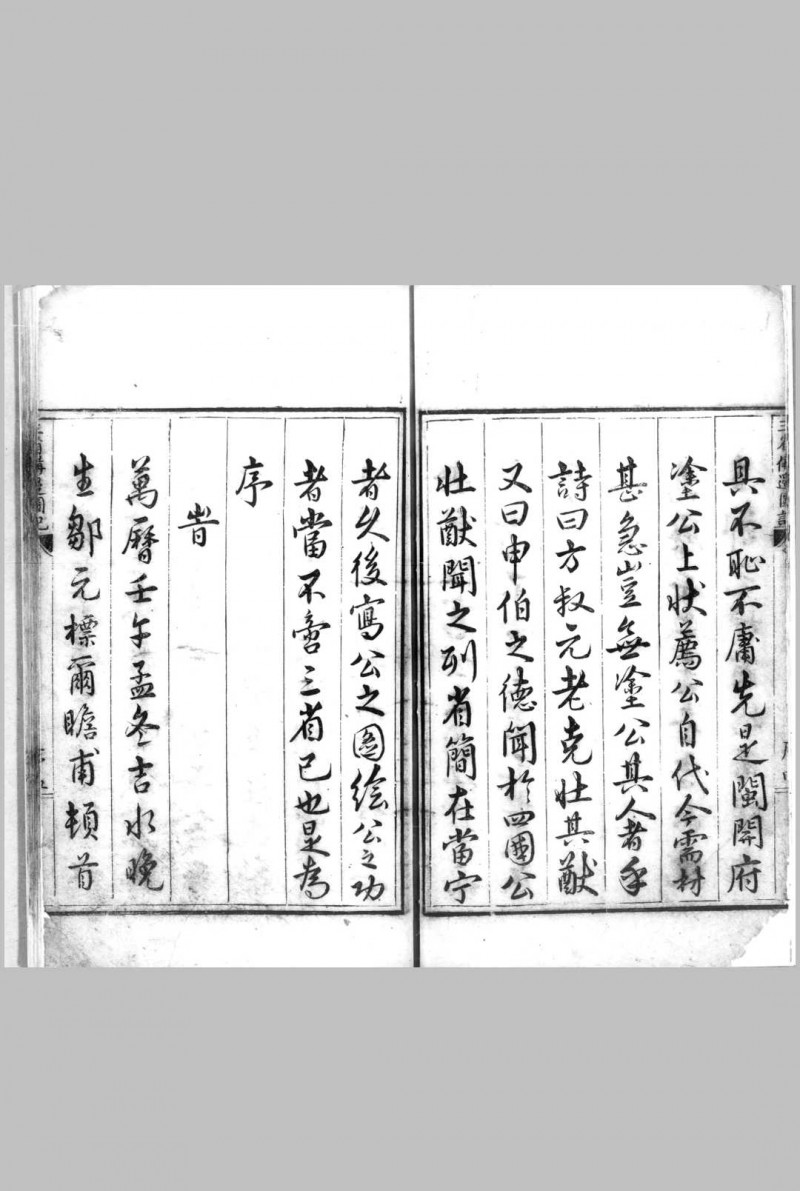 具不恥不庸先是閩開府
塗公上狀薦公自代今需材
甚急豈無塗公其人者乎
詩曰方叔元老克壯其猷
又曰申伯之德聞於四國公
壯猷聞之列省簡在當宁
者久後寫公之圖繪公之功
者當不啻三省已也是為
序
旹
萬曆壬午孟冬吉水晚
生鄒元標爾瞻甫頓首